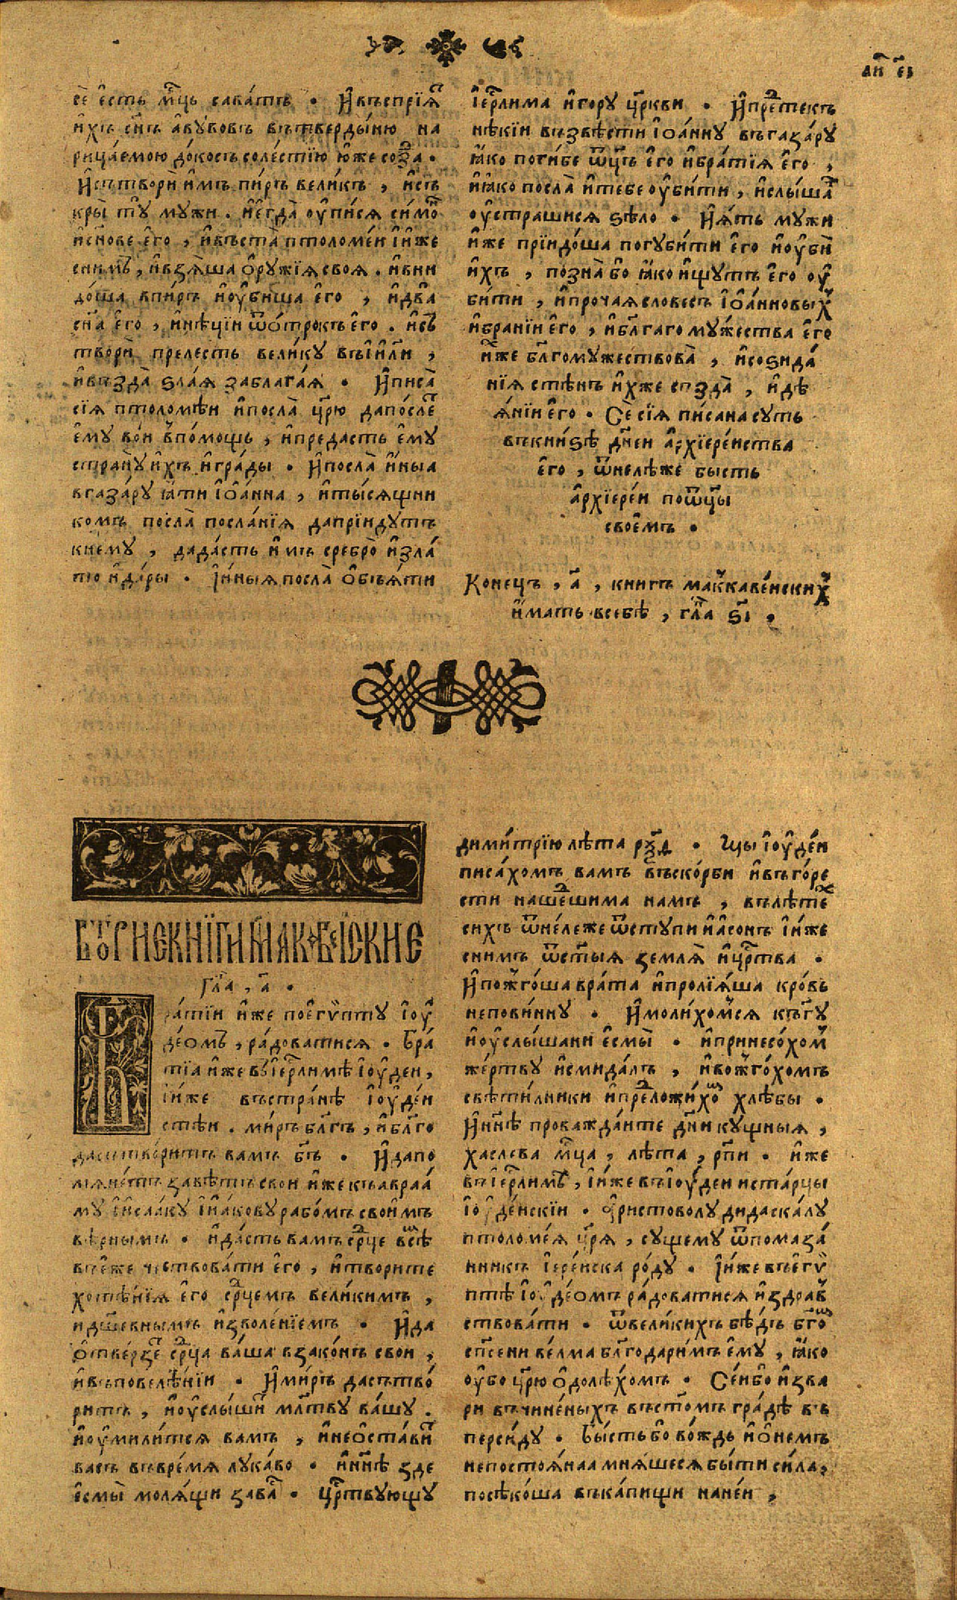 сѐ є҆сть мц҃ь сава́тъ . И҆ въспрїѧ̀
и҆хъ сн҃ъ а҆вꙋвовъ въ тверды́ню на
рица́емою до́косъ со лестїю ю҆́же созда̀ .
И҆ сътворѝ и҆мъ пи́ръ вели́къ , и҆ съ
кры̀ тꙋ̀ мꙋжи . и҆ є҆гда̀ ᲂу҆пи́сѧ си́монъ
и҆ сн҃ове є҆го̀ , и҆ въста̀ птоломе́й и҆ и҆́же
с ни́мъ , и҆ взѧ́ша ѻ҆рꙋ́жїѧ своѧ̀ . и҆ вни
до́ша в пи́ръ и҆ ᲂу҆би́ша є҆го̀ , и҆ два̀
сн҃а є҆го̀ , и҆ нѣ́цїи ѿ ѻ҆́трокъ є҆го̀ . и҆ съ
творѝ пре́лесть вели́кꙋ въ і҆и҃ли ,
и҆ възда̀ ѕла́ѧ за блага́ѧ . И҆ писа̀
сїѧ̀ птоломѣ́й и҆ посла̀ цр҃ю да по́слетъ
є҆мꙋ̀ во́и в по́мощь , и҆ преда́сть є҆мꙋ̀
странꙋ̀ и҆́хъ и҆ гра́ды . И҆ посла̀ и҆ны́а
в газа́рꙋ ꙗ҆́ти і҆ѡа́нна , и҆ ты́сѧщни
комъ посла̀ посла́нїѧ да прїи́дꙋтъ
к немꙋ̀ , да да́сть и҆́мъ сребро̀ и҆ зла́
то и҆ да́ры . І҆ и҆ны́ѧ посла̀ ѻ҆б̾ѧ́ти
і҆ерⷭ҇лима и҆ го́рꙋ цр҃кви . И҆ пре́дтекъ
нѣ́кїи възвѣстѝ і҆ѡа́ннꙋ въ газа́рꙋ
ꙗ҆́ко поги́бе ѻ҆ц҃ъ є҆го̀ и҆ бра́тїѧ є҆го̀ ,
и҆ ꙗ҆́ко посла̀ и҆ тебѐ ᲂу҆би́ти , и҆ слы́шавъ
ᲂу҆страши́сѧ ѕѣло̀ . И҆ ꙗ҆́тъ мꙋ́жи
и҆̀же прїидо́ша погꙋби́ти є҆го̀ и҆ ᲂу҆бѝ
и҆́хъ , позна̀ бо ꙗ҆́ко и҆́щꙋтъ є҆го̀ ᲂу҆
би́ти , и҆ про́чаѧ слове́съ і҆ѡа́нновыхъ
и҆ бра́нїи є҆го̀ , и҆ бл҃га́го мꙋ́жества є҆го̀
и҆́же бл҃гомꙋ́жествова̀ , и҆ соѕида́
нїѧ стѣ́нъ и҆́хже созда̀ , и҆ дѣ
ѧ́нїи є҆го̀ . Сѐ сїѧ̀ пи́сана сꙋть
въ кни́ѕѣ дне́й а҆рхїере́йства
є҆го̀ , ѿне́лѣже бы́сть
а҆рхїере́й по ѻ҆ц҃ы̀
свое́мъ .
Коне́цъ , а҃ , кни́гъ макъкаве́йскихъ
и҆́мать в себѣ̀ , гл҃а ѕ҃і .
вторы́ѧ кни́ги макаве́йскїе
гл҃а , а҃ .
Бра́тїи и҆́же по є҆гѵ́птꙋ і҆ꙋ
де́омъ , ра́доватисѧ . Бра́
тїа и҆́же въ і҆ерⷭ҇ли́мѣ і҆ꙋде́и ,
и҆ и҆́же въ странѣ̀ і҆ꙋде́й
стѣй . ми́ръ бл҃гъ , и҆ бл҃го
да сътвори́тъ ва́мъ бг҃ъ . И҆ да по
мѧне́тъ завѣ́тъ сво́й и҆́же къ авраа́
мꙋ и҆ і҆саа́кꙋ и҆ і҆а́ковꙋ рабо́мъ свои́мъ
вѣ́рнымъ . и҆ да́сть ва́мъ ср҃це всѣ́мъ
въ є҆́же чествова́ти є҆го̀ , и҆ твори́те
хотѣ́нїѧ є҆го̀ ср҃цемъ вели́кимъ ,
и҆ дш҃евнымъ и҆зволе́нїемъ . И҆ да
ѿве́рзетъ ср҃ца ва́ша в зако́нъ сво́й ,
и҆ въ повелѣ́нїи . И҆ ми́ръ да сътво́
ри́тъ , и҆ ᲂу҆слы́шитъ мл҃твꙋ ва́шꙋ .
и҆ ᲂу҆мили́тсѧ ва́мъ , и҆ не ѻ҆ста́витъ
ва́съ въ вре́мѧ лꙋка́во . и҆ нн҃ѣ зде
є҆смы̀ молѧ́щи за ва́съ . цр҃твꙋющꙋ
дими́трїю лѣ́та рѯ҃ѳ . мы̀ і҆ꙋде́и
писа́хомъ ва́мъ въ ско́рби и҆ въ го́ре
сти наше́дшима на́мъ , въ лѣ́тѣхъ
си́хъ ѿне́леже ѿступѝ и҆а́сонъ и҆ и҆́же
с ни́мъ ѿ ст҃ы́ѧ землѧ̀ и҆ цр҃тва .
И҆ пожго́ша врата̀ и҆ пролїѧ́ша кро́вь
непови́ннꙋ . И҆ моли́хомсѧ къ гꙋ
и҆ ᲂу҆слы́шани є҆смы̀ . и҆ принесо́хомъ
же́ртвꙋ и҆ смида́лъ , и҆ вожго́хомъ
свѣти́лники и҆ предложи́хомъ хлѣ́бы .
И҆ нн҃ѣ проважда́йте дни̑ кꙋ́щныѧ ,
хасле́ва мц҃а , лѣ́та , рп҃и . и҆́же
въ і҆ерⷭ҇ли́мѣ , и҆ и҆́же въ і҆ꙋде́и и҆ ста́рцы
і҆ꙋде́йскїи . а҆ристовꙋ́лꙋ дидаска́лꙋ
птоломе́ѧ цр҃ѧ̀ , сꙋ́щемꙋ ѿ пома́за
нникъ і҆ере́йска ро́дꙋ . І҆ и҆́же въ є҆гѵ̀
птѣ і҆ꙋде́омъ ра́доватисѧ и҆ здра́в
ствовати . ѿ вели́кихъ бѣ́дъ бг҃омъ
сп҃се́ни ве́лма бл҃годари́мъ є҆мꙋ̀ , ꙗ҆́ко
ᲂу҆́бо цр҃ю̀ ѻ҆долѣ́хомъ . Се́й бо и҆зва
ри въчине́ныхъ въ ст҃о́мъ гра́дѣ въ
перси́дꙋ . Бы́сть бо во́ждь и҆ ѻ҆ не́мъ
непостоѧ́наа мнѧ́щесѧ бы́ти си́ла ,
посѣко́ша въ ка́пищи нане́и ,